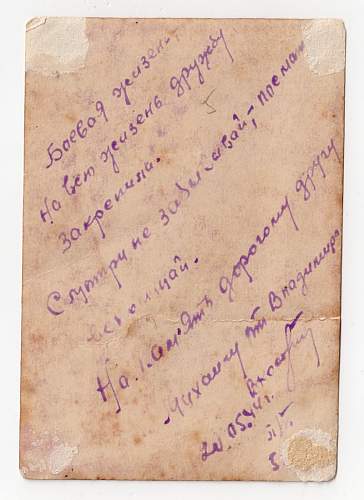 Боевая жизен-
На всю жизень дружбу
Закрепила.
Смутри не забывай,- посма
вспоминай.
На память дорогому другу
Михаилу от Владимира
20.05.44г.